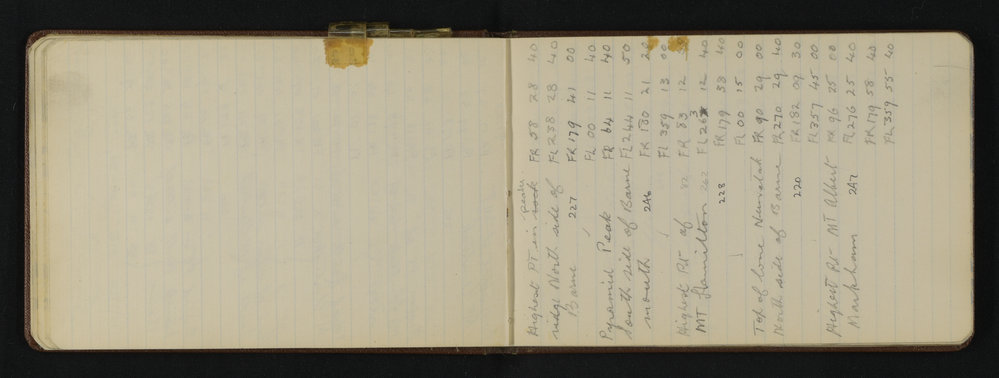 Highest PT in peaky rock FR 58 28 40
ridge North side of FL 238 28 40
Barne 227 FR 179 41 00
FL 00 11 40
Pyramid Peak FR 64 11 40
South side of Barne FL 244 11 50
mouth 246 FR 180 21 20
FL 359 13 00
Highest Pt of 82 FR 83 12
MT Hamilton 262 FL 263 12 40
228 FR 179 38 40
FL 00 15 00
Top of lone Nunatak FR 90 29 00
North side of Barne FL 270 29 40
220 FR 182 09 30
FL 357 45 00
Highest Pt MT Albert FR 96 25 00
Markham 247 FL 276 25 40
FR 179 58 40
FL 359 55 40